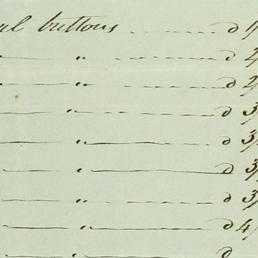 buttons d
— " — d 2/
— " — d 2/
— " — d 3/
— " — d 3/
— " — d 3/
— " — d 3/
— " — d 4/
— " — d